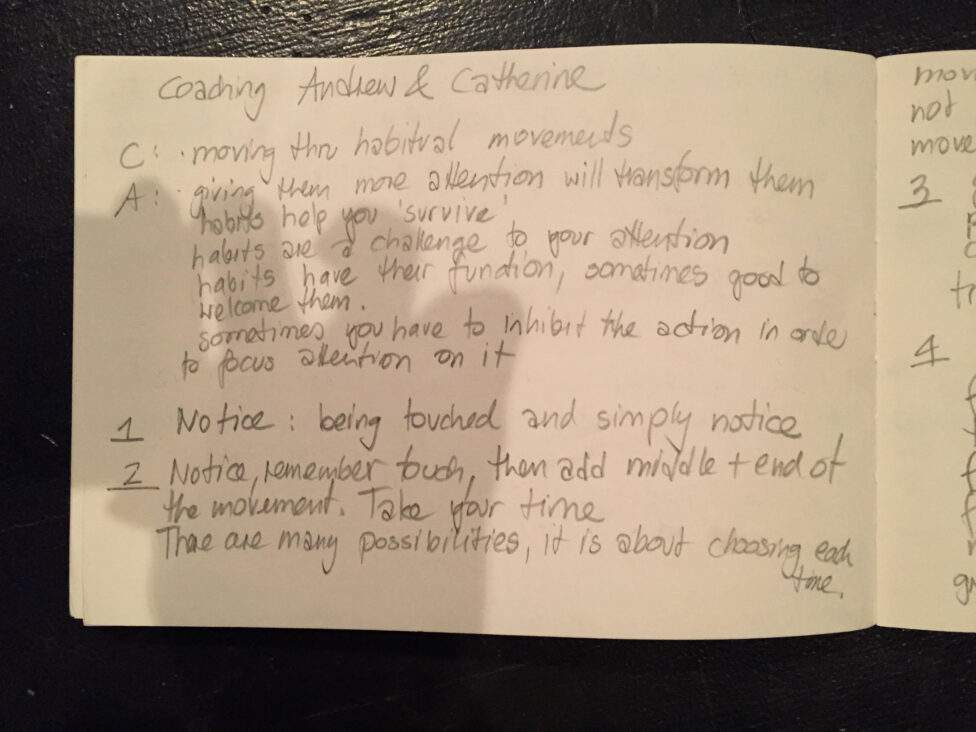 Coaching Andrew & Catherine
C: · moving thru habitual movements
A: · giving them more attention will transform them
habits help you 'survive'
habits are a challenge to your attention
habits have their function, sometimes good to
welcome them.
sometimes you have to inhibit the action in order
to focus attention on it
1 Notice: being touched and simply notice
2 Notice, remember touch, then add middle + end of
the movement. Take your time
There are many possibilities, it is about choosing each
time.
not
move
3
4